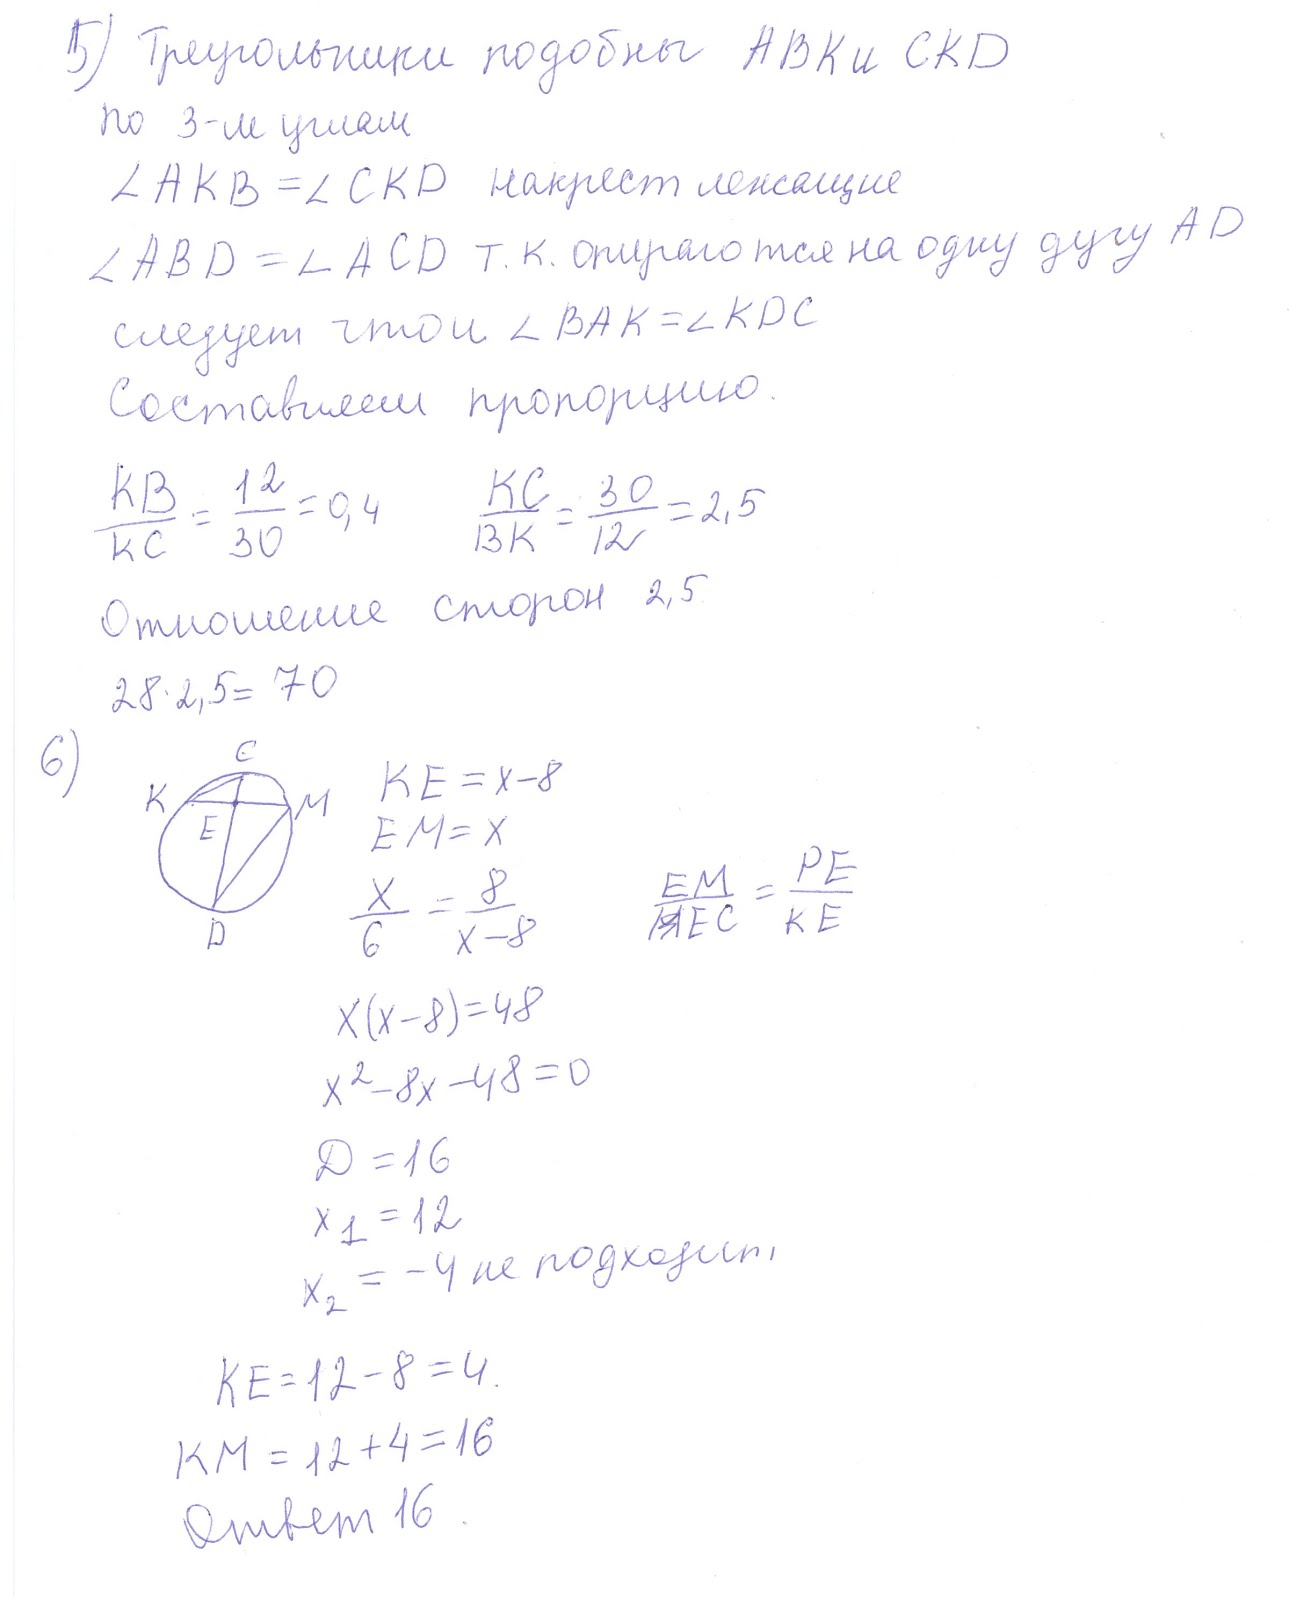 5) Треугольники подобны ABK и CKD
по 3-м углам
∠AKB = ∠CKD накрест лежащие
∠ABD = ∠ACD т.к. опираются на одну дугу AD
следует что и ∠BAK = ∠KDC
Составляем пропорцию.
KB/KC = 12/30 = 0,4 KC/BK = 30/12 = 2,5
Отношение сторон 2,5
28·2,5 = 70
6)
C
K
M
E
D
KE = x-8
EM = x
x/6 = 8/x-8 EM/EC = PE/KE
x(x-8) = 48
x²-8x-48 = 0
D = 16
x1 = 12
x2 = -4 не подходит,
KE = 12-8 = 4.
KM = 12+4 = 16
Ответ 16.